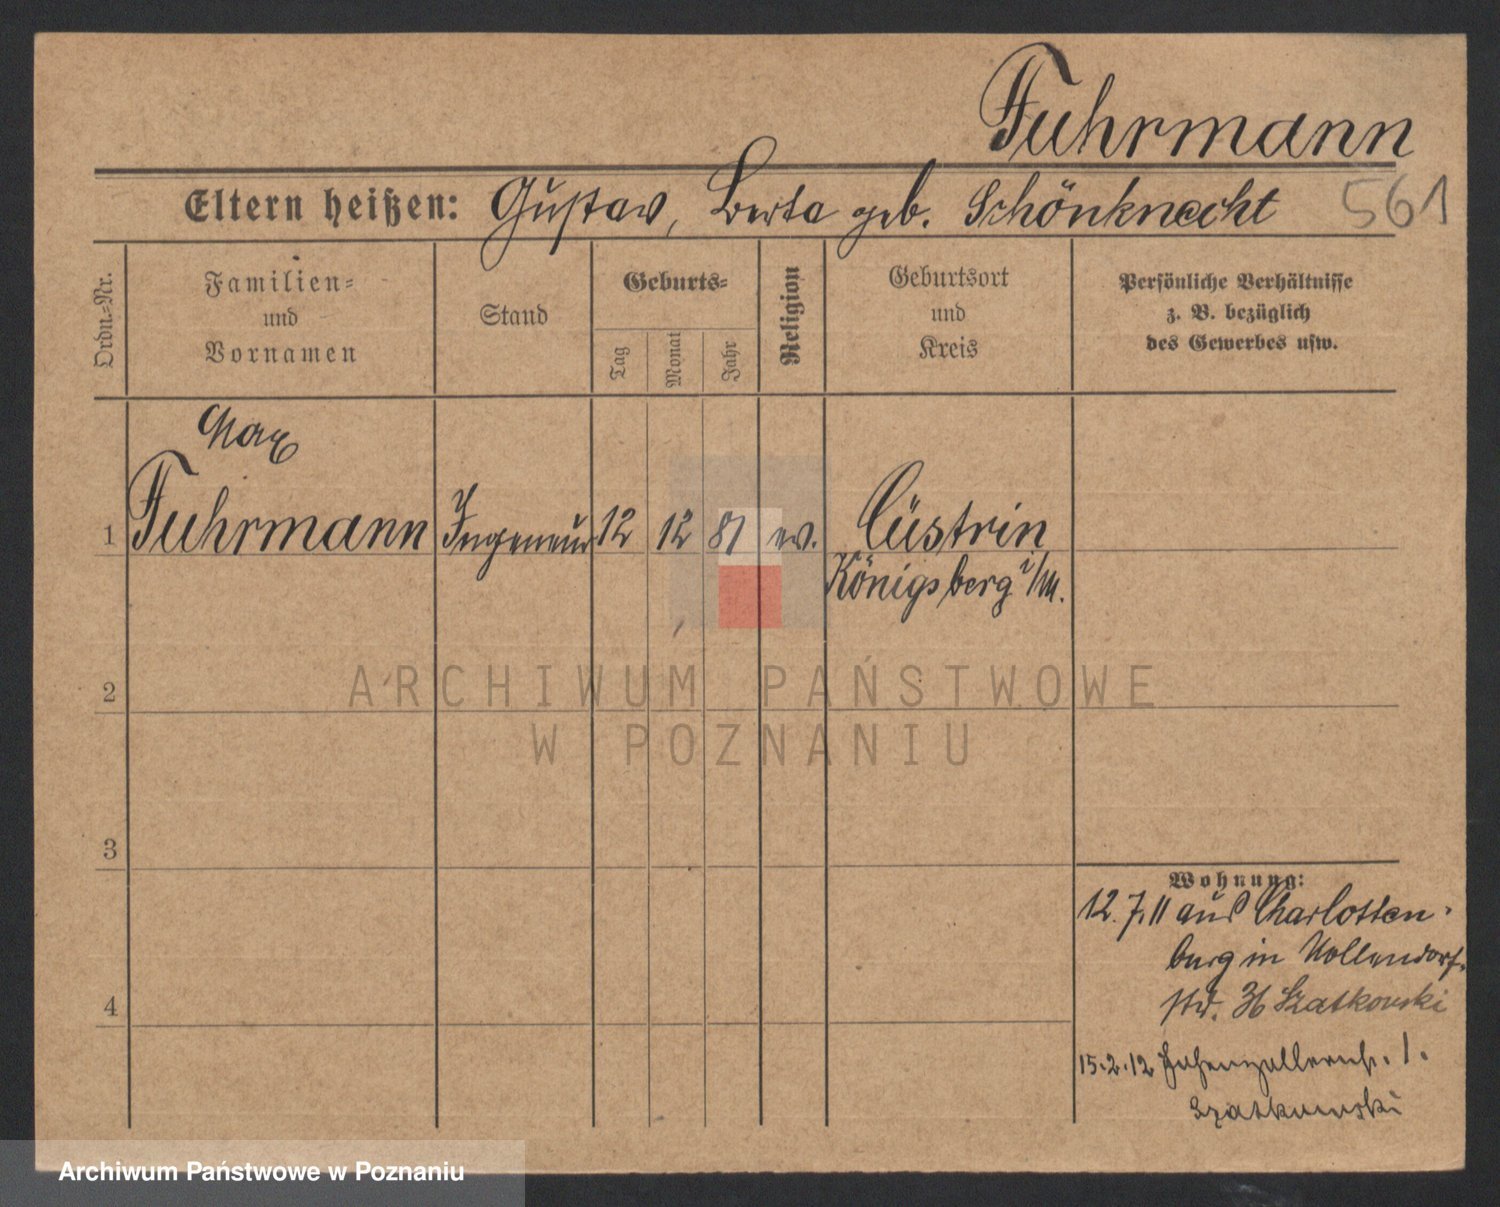 Fuhrmann
Eltern heißen: Gustav, Berta geb. Schönknecht 561
Ordn.=Nr.
Familien=
und
Vornamen
Stand
Geburts=
Tag
Monat
Jahr
Religion
Geburtsort
und
Kreis
Persönliche Verhältnisse
z. B. bezüglich
des Gewerbes usw.
Max
1 Fuhrmann Ingeneur 12 12 81 ev. Cüstrin
Königsberg i/M.
ARCHIWUM PAŃSTWOWE
W POZNANIU
2
3
4
Wohnung:
12.7.11 aus Charlotten
burg in Nollendorf
str. 36 Szatkowski
15.2.12 Hohenzollernstr. 1.
Szatkowski
Archiwum Państwowe w Poznaniu